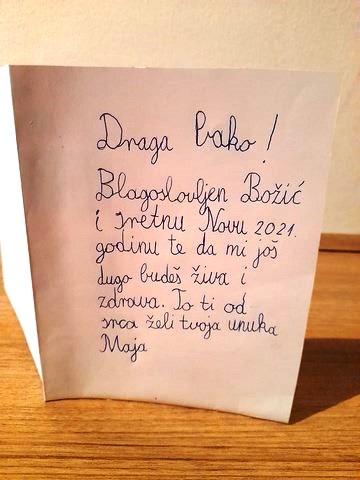 Draga bako!
Blagoslovljen Božić
i sretnu Novu 2021.
godinu te da mi još
dugo budeš živa i
zdrava. To ti od
srca želi tvoja unuka
Maja